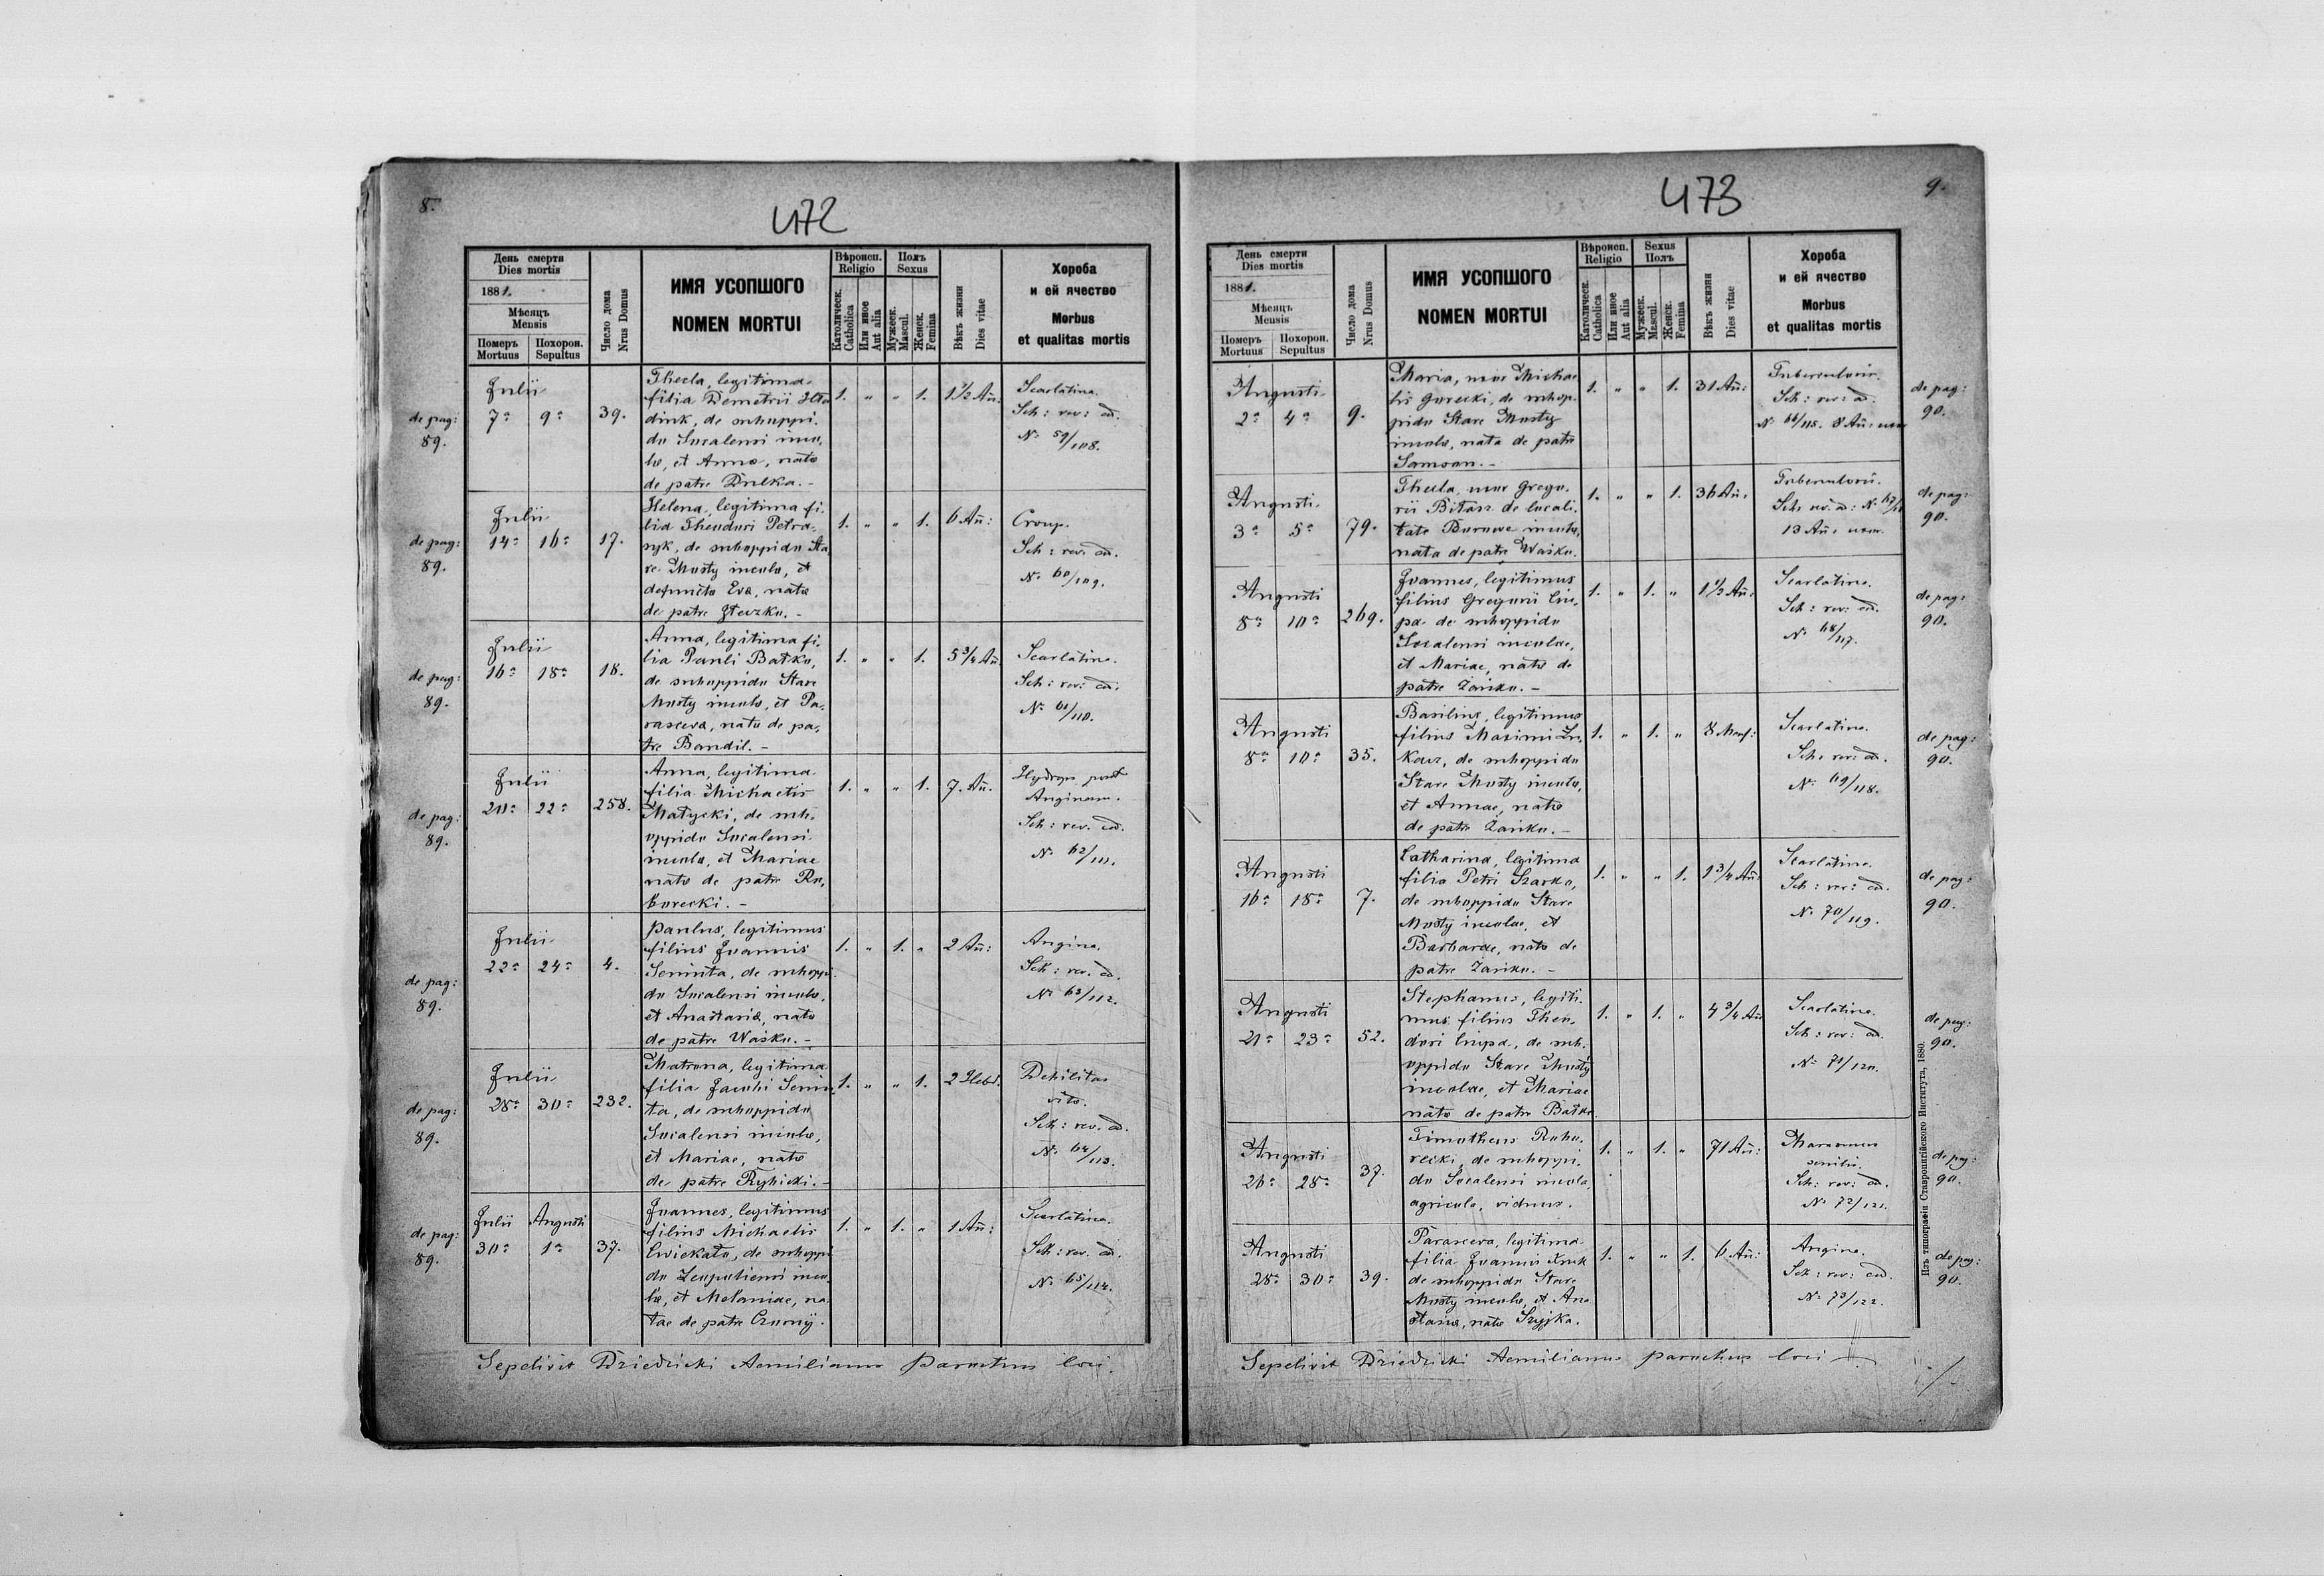 8.
472
День смерти
Dies mortis
1881.
Мѣсяцъ
Mensis
Померъ
Mortuus
Похорон.
Sepultus
Число дома
Nrus Domus
ИМЯ УСОПШОГО
NOMEN MORTUI
Вѣроисп.
Religio
Католическ.
Catholica
Или иное
Aut alia
Полъ
Sexus
Мужеск.
Mascul.
Женск.
Femina
Вѣкъ жизни
Dies vitae
Хороба
и ей ячество
Morbus
et qualitas mortis
de pag:
89.
Julii
7a 9a 39.
Thecla, legitima
filia Demetrii
dink, de subuppi.
do Socalensi inco,
lae, et Annae, natae
de patre Dulka. -
1. " " 1. 1 1/2 An:
Scarlatina.
Sch: rev: ad.
No 59/108.
de pag:
89.
Julii
14a 16a 17.
Helena, legitima fi.
lia Theodori Petra,
syk, de suboppido Sta
re Mosty incolae, et
defunctae Eva, natae
de patre
1. " " 1. 6 An:
Croup.
Sch: rev. ad.
No 60/109.
de pag:
89.
Julii
16a 18a 18.
Anna, legitima fi.
lia Pauli Batko,
de suboppido Stare
Mosty incolae, et Pa,
rascevae, natae de pa,
tre Bandil. -
1. " " 1. 5 3/4 An.
Scarlatina.
Sch: rev: ad.
No 61/110.
de pag:
89.
Julii
20a 22a 258.
Anna, legitima
filia Michaelis
Matycki, de sub,
oppido Socalensi
incolae, et Mariae
natae de patre Ro,
horecki. -
1. " " 1. 7. An.
Hydrops post
Anginam.
Sch: rev. ad.
No 62/111.
de pag:
89.
Julii
22a 24a 4.
Paulus, legitimus
filius Joannis
Seniuta, de suboppi.
do Socalensi incolae,
et Anastasiae, natae
de patre Waśko. -
1. " 1. " 2 An:
Angina.
Sch: rev. ad.
No 63/112.
de pag:
89.
Julii
28a 30a 232.
Matrona, legitima
filia Jacobi Seniu,
ta, de suboppido
Socalensi incolae,
et Mariae, natae
de patre Rybicki. -
1. " " 1. 2 Hebd.
Debilitas
vitae.
Sch: rev. ad.
No 64/113.
de pag:
89.
Julii Augusti
30a 1a 37.
Joannes, legitimus
filius Michaelis
Cwiekała, de suboppi
do inco,
lae, et Melaniae, na
tae de patre Czornij.
1. " 1. " 1 An:
Scarlatina.
Sch: rev. ad.
No 65/114.
Sepelivit Dziedzicki Aemilianus Parochus loci.
9.
473
День смерти
Dies mortis
1881.
Мѣсяцъ
Mensis
Померъ
Mortuus
Похорон.
Sepultus
Число дома
Nrus Domus
ИМЯ УСОПШОГО
NOMEN MORTUI
Вѣроисп.
Religio
Католическ.
Catholica
Или иное
Aut alia
Sexus
Полъ
Мужеск.
Mascul.
Женск.
Femina
Вѣкъ жизни
Dies vitae
Хороба
и ей ячество
Morbus
et qualitas mortis
Augusti
2a 4a 9.
Maria, uxor Michae
lis Gorecki, de subop.
pido Stare Mosty
incolae, nata de patre
Samson. -
1. " " 1. 31 An:
Tuberculosis.
Sch: rev: ad.
No 66/115. 8 An: uxor
de pag:
90.
Augusti
3a 5a 79.
Thecla, uxor Grego,
rii Bitasz de locali,
tate Borowe incolae,
nata de patre Waśko.
1. " " 1. 36 An.
Tuberculosis.
Sch: rev. ad: No 67/
13 An: uxor.
de pag:
90.
Augusti
8a 10a 269.
Joannes, legitimus
filius Gregorii Ciu,
pa de suboppido
Socalensi incolae,
et Mariae, natae de
patre Zańko. -
1. " 1. " 1 1/2 An:
Scarlatina.
Sch: rev: ad.
No 68/117.
de pag:
90.
Augusti
8a 10a 35.
Basilius, legitimus
filius Maximi Łu,
kasz, de suboppido
Stare Mosty incolae,
et Annae, natae
de patre Zańko. -
1. " 1. " 8 Mens:
Scarlatina.
Sch: rev: ad.
No 69/118.
de pag:
90.
Augusti
16a 18a 7.
Catharina, legitima
filia Petri Szarko,
de suboppido Stare
Mosty incolae, et
Barbarae, natae de
patre Zańko. -
1. " " 1. 1 3/4 An:
Scarlatina.
Sch: rev: ad.
No 70/119.
de pag:
90.
Augusti
21a 23a 52.
Stephanus, legiti,
mus filius Theo,
dori Ciupa, de sub,
oppido Stare Mosty
incolae, et Mariae
natae de patre Batko.
1. " 1. " 4 3/4 An
Scarlatina.
Sch: rev: ad.
No 71/120.
de pag:
90.
Augusti
26a 28a 37.
Timotheus Roho,
recki, de suboppi,
do Socalensi incola,
agricola, viduus.
1. " 1. " 71 An:
Marasmus
senilis.
Sch: rev: ad.
No 72/121.
de pag:
90.
Augusti
28a 30a 39.
Parasceva, legitima
filia Joannis
de suboppido Stare
Mosty incolae, et Ana
stasiae, natae Szyjka.
1. " " 1. 6 An:
Angina.
Sch: rev: ad.
No 73/122.
de pag:
90.
Sepelivit Dziedzicki Aemilianus parochus loci
Изъ типографіи Ставропигійского Института, 1880.